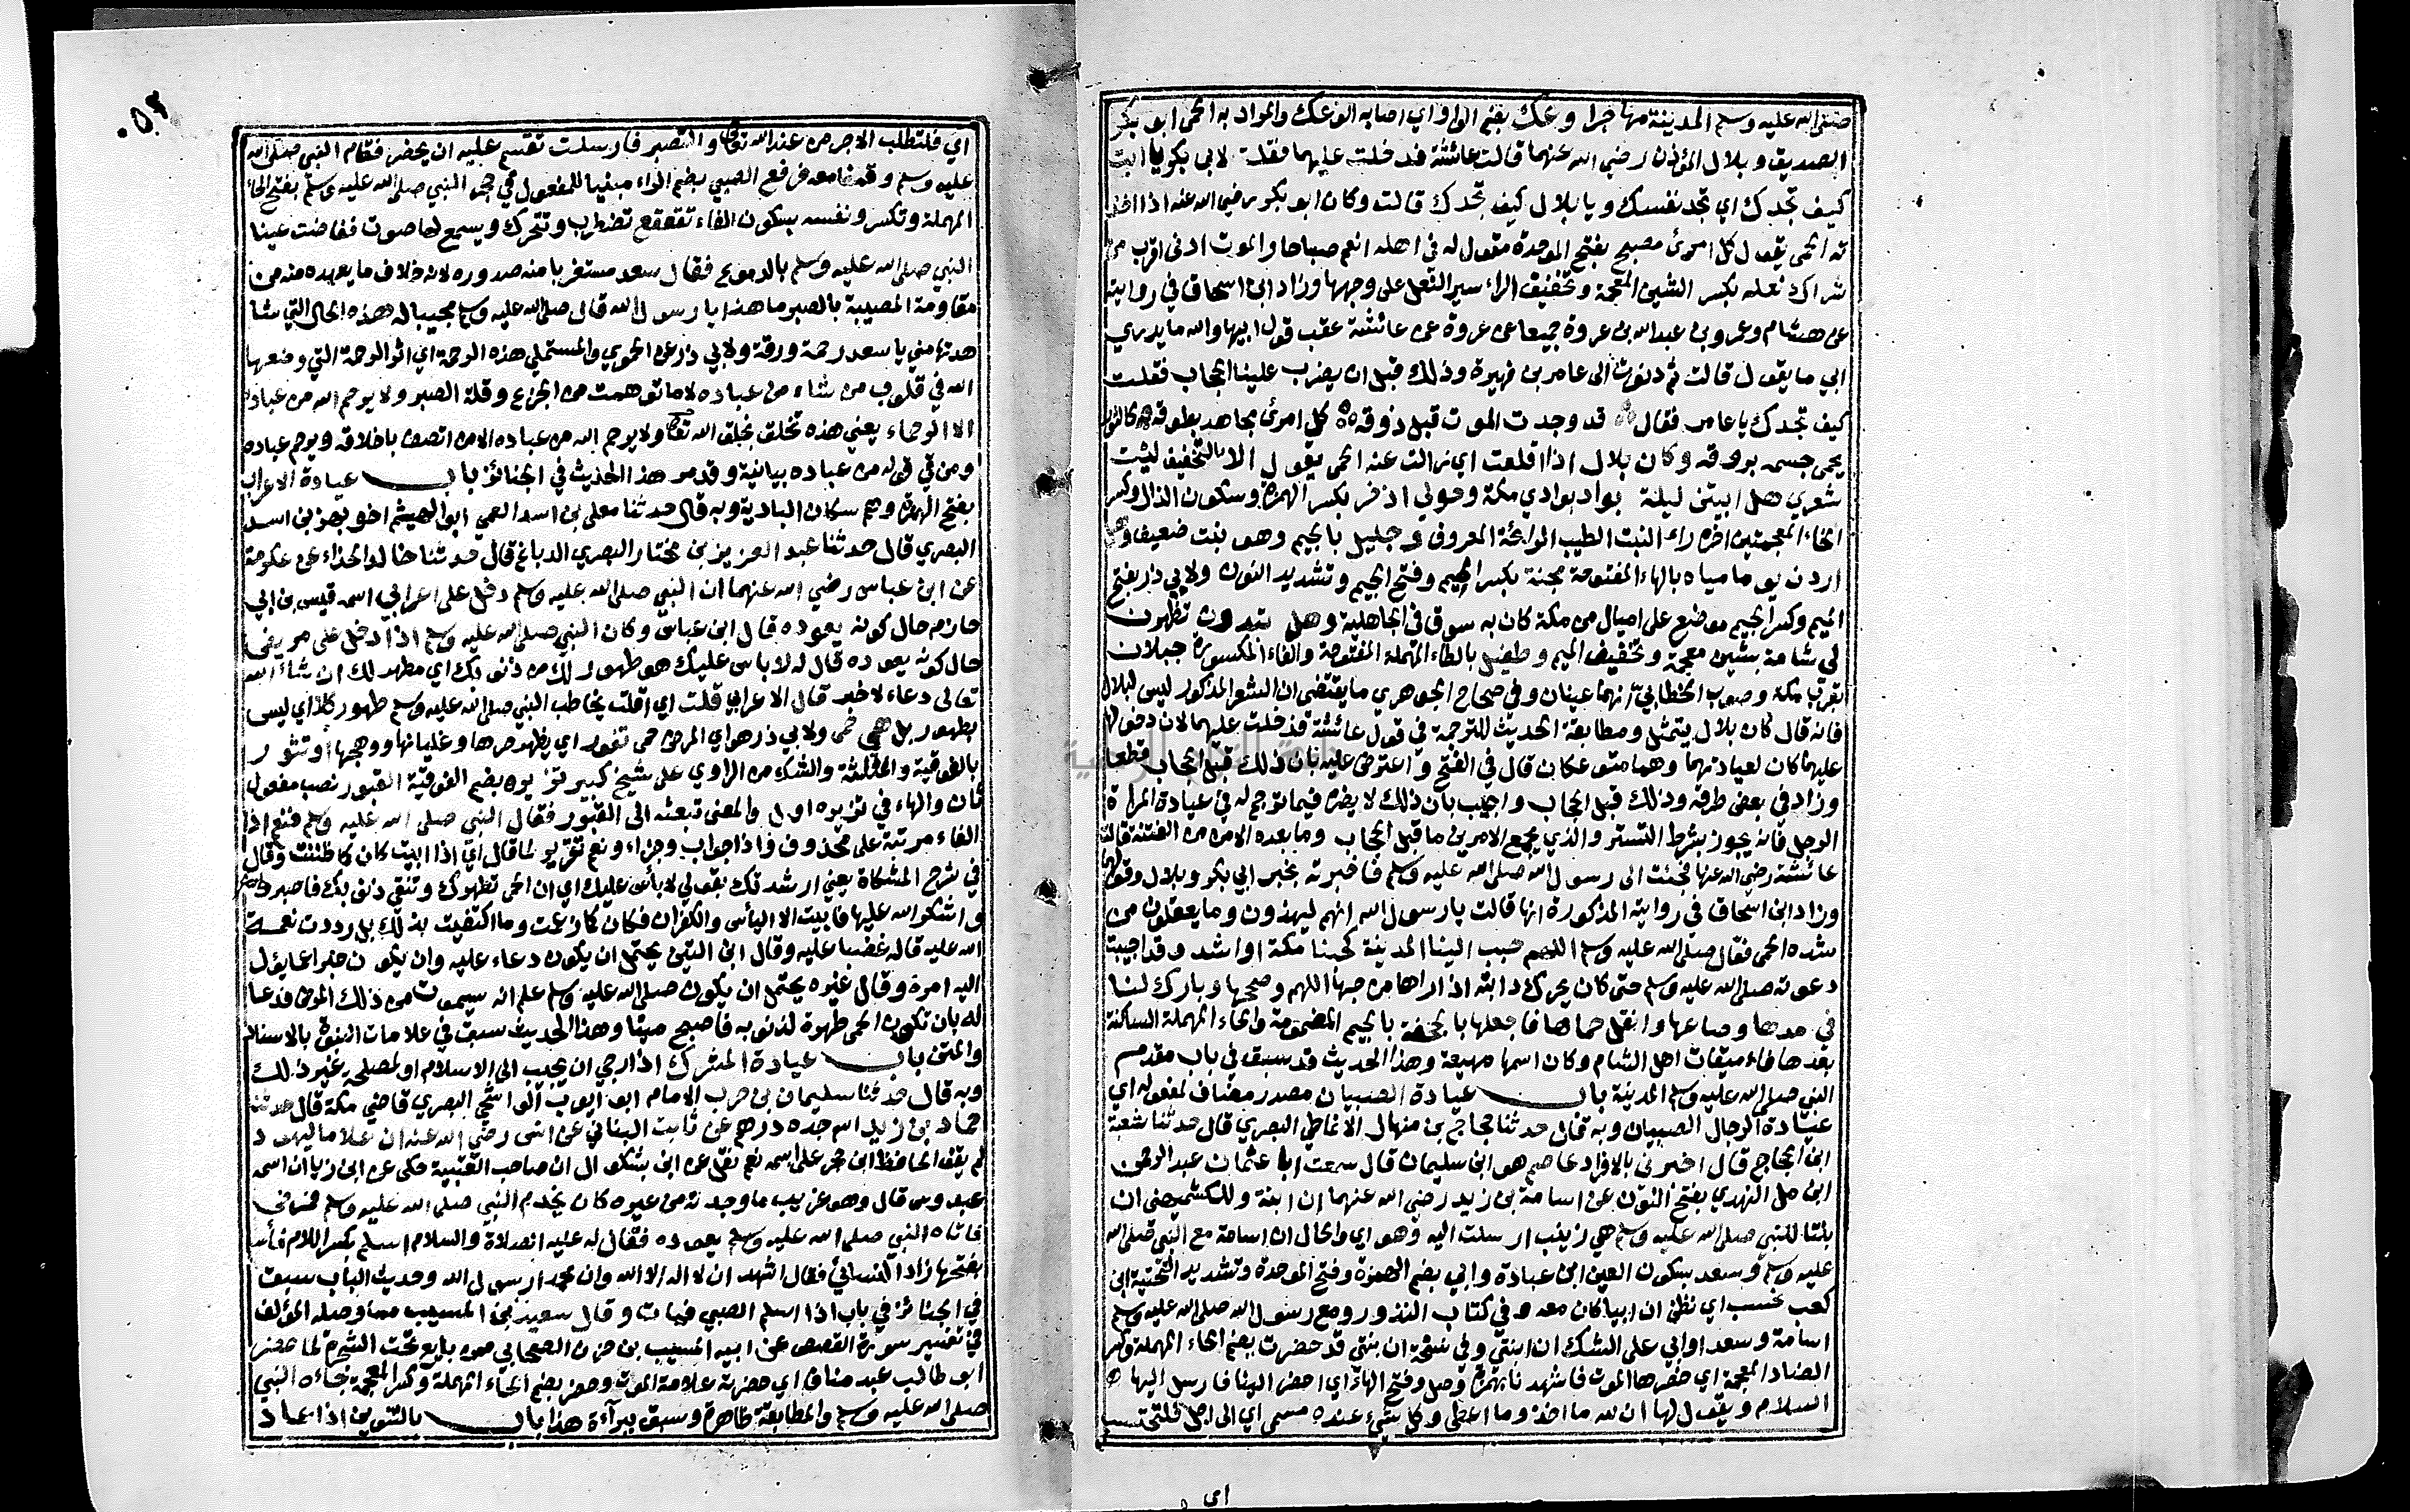 صلى الله عليه وسلم المدينة مهاجرا وعك بضم الواو اي اصابه الوعك والمراد به الحمى ابو بكر
الصديق وبلال المؤذن رضي الله عنهما قالت عائشة فدخلت عليهما فقلت لابي بكر يا ابت
كيف تجدك اي تجد نفسك ويا بلال كيف تجدك قالت وكان ابو بكر رضي الله عنه اذا اخذ
ته الحمى يقول كل امرئ مصبح بفتح الموحدة مقول له في اهله انعم صباحا والموت ادنى اقرب من
شراك نعله بكسر الشين المعجمة وتخفيف الراء سير النعل على وجهها وزاد ابن اسحاق في روايته
عن هشام وعمرو بن عبد الله بن عروة جميعا عن عروة عن عائشة عقب قول ابيها والله ما يدري
ابي ما يقول قالت ثم دنوت الى عامر بن فهيرة وذلك قبل ان يضرب علينا الحجاب فقلت
كيف تجدك يا عامر فقال قد وجدت الموت قبل ذوقه كل امرئ مجاهد بطوقه كالثور
يحمي جسمه بروقه وكان بلال اذا اقلعت اي زالت عنه الحمى يقول الا بالتخفيف ليت
شعري هل ابيتن ليلة بواد بوادي مكة وحولي اذخر بكسر الهمزة وسكون الذال وكسر
الخاء المعجمتين اخره راء النبت الطيب الرائحة المعروف وجليل بالجيم وهو نبت ضعيف وهل
اردن يوما مياه بالهاء المفتوحة مجنة بكسر الميم وفتح الجيم وتشديد النون ولابي ذر بفتح
الميم وكسر الجيم موضع على اميال من مكة كان به سوق في الجاهلية وهل تبدون تظهرن
لي شامة بشين معجمة وتخفيف الميم وطفيل بالطاء المهملة المفتوحة والفاء المكسورة جبلان
بقرب مكة وصوب الخطابي انهما عينان وفي صحاح الجوهري ما يقتضي ان الشعر المذكور ليس لبلال
فانه قال كان بلال يتمثل ومطابقة الحديث للترجمة في قول عائشة فدخلت عليهما لان دخولها
عليهما كان لعيادتهما وهما متوعكان قال في الفتح واعترض عليه بان ذلك قبل الحجاب قطعا
وزاد في بعض طرقه وذلك قبل الحجاب واجيب بان ذلك لا يضره فيما ترجم له في عيادة المراة
الرجل فانه يجوز بشرط التستر والذي يجمع الامرين ما قبل الحجاب وما بعده الامن من الفتنة قالت
عائشة رضي الله عنها فجئت الى رسول الله صلى الله عليه وسلم فاخبرته بخبر ابي بكر وبلال وقولهما
وزاد ابن اسحاق في روايته المذكورة انها قالت يا رسول الله انهم ليهذون وما يعقلون من
شدة الحمى فقال صلى الله عليه وسلم اللهم حبب الينا المدينة كحبنا مكة او اشد وقد اجيبت
دعوته صلى الله عليه وسلم حتى كان يحرك دابته اذا راها من حبها اللهم وصححها وبارك لنا
في مدها وصاعها وانقل حماها فاجعلها بالجحفة بالجيم المضمومة والحاء المهملة الساكنة
بعدها فاء ميقات اهل الشام وكان اسمها مهيعة وهذا الحديث قد سبق في باب مقدم
النبي صلى الله عليه وسلم المدينة باب عيادة الصبيان مصدر مضاف لمفعوله اي
عيادة الرجال الصبيان وبه قال حدثنا حجاج بن منهال الانماطي البصري قال حدثنا شعبة
ابن الحجاج قال اخبرني بالافراد عاصم هو ابن سليمان قال سمعت ابا عثمان عبد الرحمن
ابن مل النهدي بفتح النون عن اسامة بن زيد رضي الله عنهما ان ابنة وللكشميهني ان
بنتا للنبي صلى الله عليه وسلم هي زينب ارسلت اليه وهو اي والحال ان اسامة مع النبي صلى الله
عليه وسلم وسعد بسكون العين ابن عبادة وابي بضم الهمزة وفتح الموحدة وتشديد التحتية ابن
كعب نحسب اي نظن ان ابيا كان معه وفي كتاب النذور ومع رسول الله صلى الله عليه وسلم
اسامة وسعد او ابي على الشك ان ابنتي وفي نسخة ان بنتي قد حضرت بضم الحاء المهملة وكسر
الضاد المعجمة اي حضرها الموت فاشهدنا بهمزة وصل وفتح الهاء اي احضر الينا فارسل اليها
السلام ويقول لها ان لله ما اخذ وما اعطى وكل شيء عنده مسمى اي الى اجل فلتحتسب
اي
اي فلتطلب الاجر من عند الله تعالى والتصبر فارسلت تقسم عليه ان يحضر فقام النبي صلى الله
عليه وسلم وقمنا معه فرفع الصبي بضم الراء مبنيا للمفعول في حجر النبي صلى الله عليه وسلم بفتح الحاء
المهملة وتكسر ونفسه بسكون الفاء تقعقع تضطرب وتتحرك ويسمع لها صوت ففاضت عينا
النبي صلى الله عليه وسلم بالدموع فقال سعد مستغربا منه صدوره لانه خلاف ما يعهده منه من
مقاومة المصيبة بالصبر ما هذا يا رسول الله قال صلى الله عليه وسلم مجيبا له هذه الحال التي شا
هدتها مني يا سعد رحمة ورقة ولابي ذر عن الحموي والمستملي هذه الرحمة اي اثر الرحمة التي وضعها
الله في قلوب من شاء من عباده لا ما توهمت من الجزع وقلة الصبر ولا يرحم الله من عباده
الا الرحماء يعني هذه تخلق بخلق الله تعالى ولا يرحم الله من عباده الا من اتصف باخلاقه ويرحم عباده
ومن في قوله من عباده بيانية وقد مر هذا الحديث في الجنائز باب عيادة الاعراب
بفتح الهمزة وهم سكان البادية وبه قال حدثنا معلى بن اسد العمي ابو الهيثم اخو بهز بن اسد
البصري قال حدثنا عبد العزيز بن مختار البصري الدباغ قال حدثنا خالد الحذاء عن عكرمة
عن ابن عباس رضي الله عنهما ان النبي صلى الله عليه وسلم دخل على اعرابي اسمه قيس بن ابي
حازم حال كونه يعوده قال ابن عباس وكان النبي صلى الله عليه وسلم اذا دخل على مريض
حال كونه يعوده قال له لا باس عليك هو طهور لك من ذنوبك اي مطهر لك ان شاء الله
تعالى دعاء لا خبر قال الاعرابي قلت اي اقلت يخاطب النبي صلى الله عليه وسلم طهور كلا اي ليس
بطهور بل هي حمى ولابي ذر هو اي المرض حمى تفور اي يظهر حرها وغليانها ووهجها او تثور
بالفوقية والمثلثة والشك من الراوي على شيخ كبير تزيره بضم الفوقية القبور نصب مفعول
ثان والهاء في تزيره اول والمعنى تبعثه الى القبور فقال النبي صلى الله عليه وسلم فنعم اذا
الفاء مرتبة على محذوف واذا جواب وجزاء ونعم تقرير لما قال اي اذا ابيت كان كما ظننت وقال
في شرح المشكاة يعني ارشدتك بقولي لا بأس عليك اي ان الحمى تطهرك وتنقي ذنوبك فاصبر
واشكر الله عليها فابيت الا الياس والكفران فكان كما زعمت وما اكتفيت بذلك بل رددت نعمة
الله عليه قاله غضبا عليه وقال ابن التين يحتمل ان يكون دعاء عليه وان يكون خبرا عما يؤل
اليه امره وقال غيره يحتمل ان يكون صلى الله عليه وسلم علم انه سيموت من ذلك المرض فدعا
له بان تكون الحمى طهرة لذنوبه فاصبح ميتا وهذا الحديث سبق في علامات النبوة بالاسناد
والمتن باب عيادة المشرك اذا رجي ان يجيب الى الاسلام او لمصلحة غير ذلك
وبه قال حدثنا سليمان بن حرب الامام ابو ايوب الواشحي البصري قاضي مكة قال حدثنا
حماد بن زيد اسم جده درهم عن ثابت البناني عن انس رضي الله عنه ان غلاما ليهود
لم يقف الحافظ ابن حجر على اسمه نعم نقل عن ابن بشكوال ان صاحب العتبية حكى عن ابن زياد ان اسمه
عبدوس قال وهو غريب ما وجدته عن غيره كان يخدم النبي صلى الله عليه وسلم فمرض
فاتاه النبي صلى الله عليه وسلم يعوده فقال له عليه الصلاة والسلام اسلم بكسر اللام فأسلم
بفتحها زاد النسائي فقال اشهد ان لا اله الا الله وان محمدا رسول الله وحديث الباب سبق
في الجنائز في باب اذا اسلم الصبي فمات وقال سعيد بن المسيب مما وصله المؤلف
في تفسير سورة القصص عن ابيه المسيب بن حزن الصحابي ممن بايع تحت الشجرة لما حضر
ابو طالب عبد مناف اي حضرته علامة الموت وحضر بضم الحاء المهملة وكسر المعجمة جاءه النبي
صلى الله عليه وسلم والمطابقة ظاهرة وسبق ببرآءة هذا باب بالتنوين اذا عاد